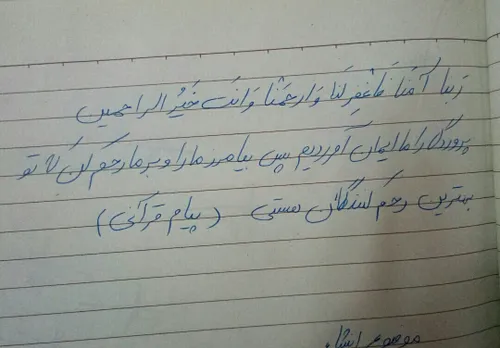 رَبنا آمَنا فَاغْفِرلَنا وَارحَمْنا وَانَت خَیرُ الراحمین
پروردگارا ما ایمان آوردیم پس بیامرز ما را و بر ما رحم کن که تو
بهترین رحم کنندگان هستی (پیام قرآنی)
موضوع انشا: